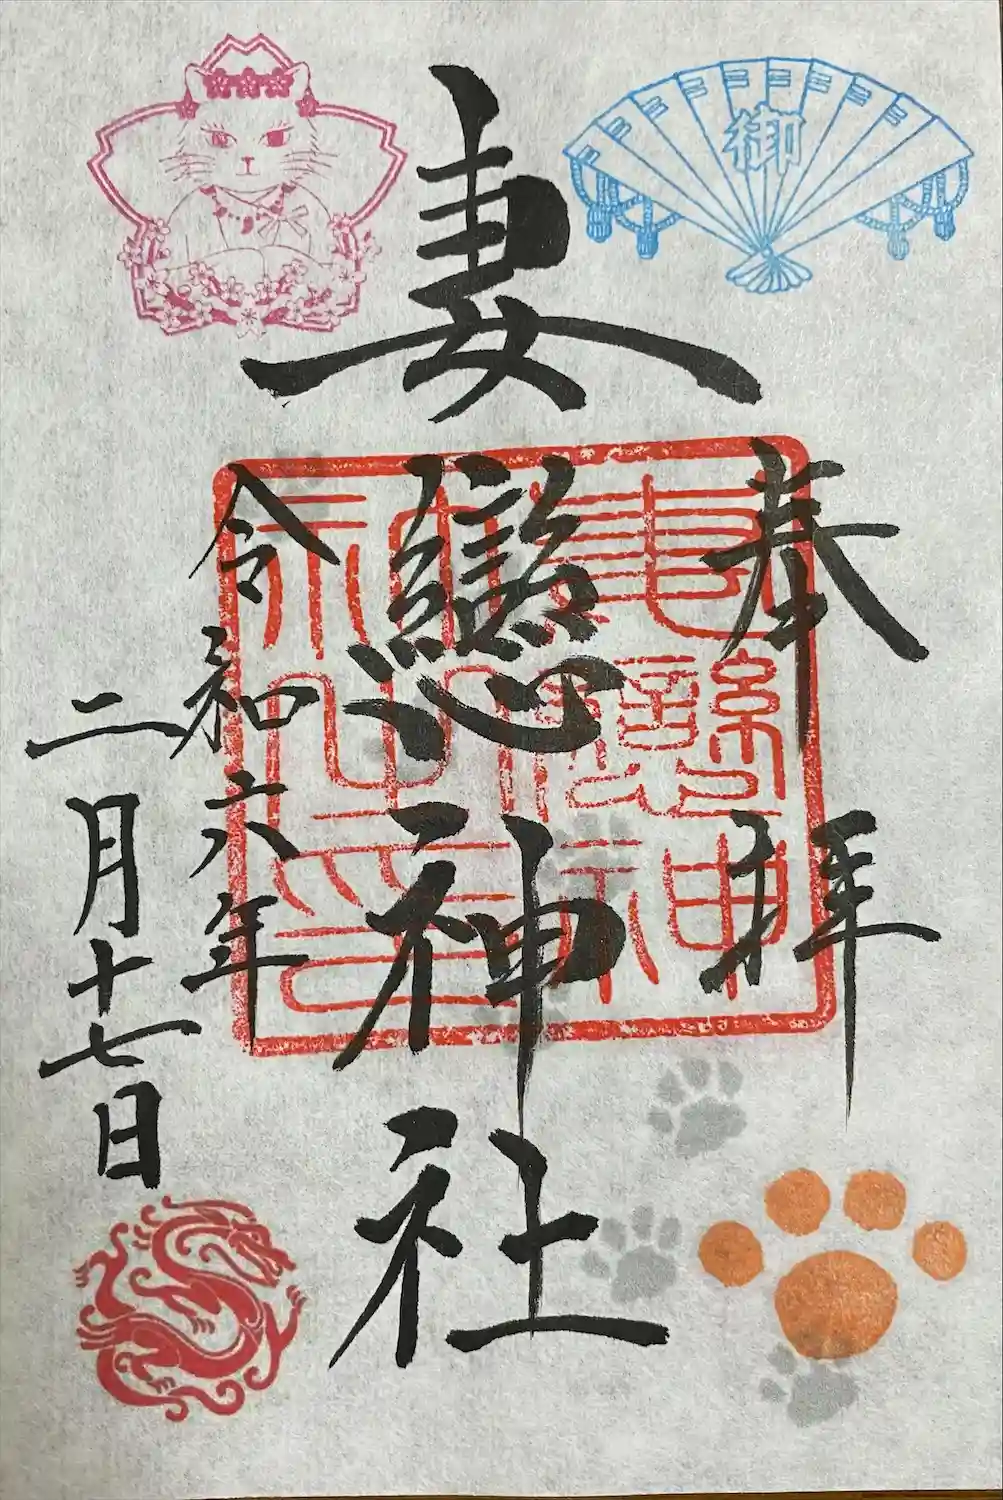 御
奉拝
妻戀神社
令和六年
二月十七日